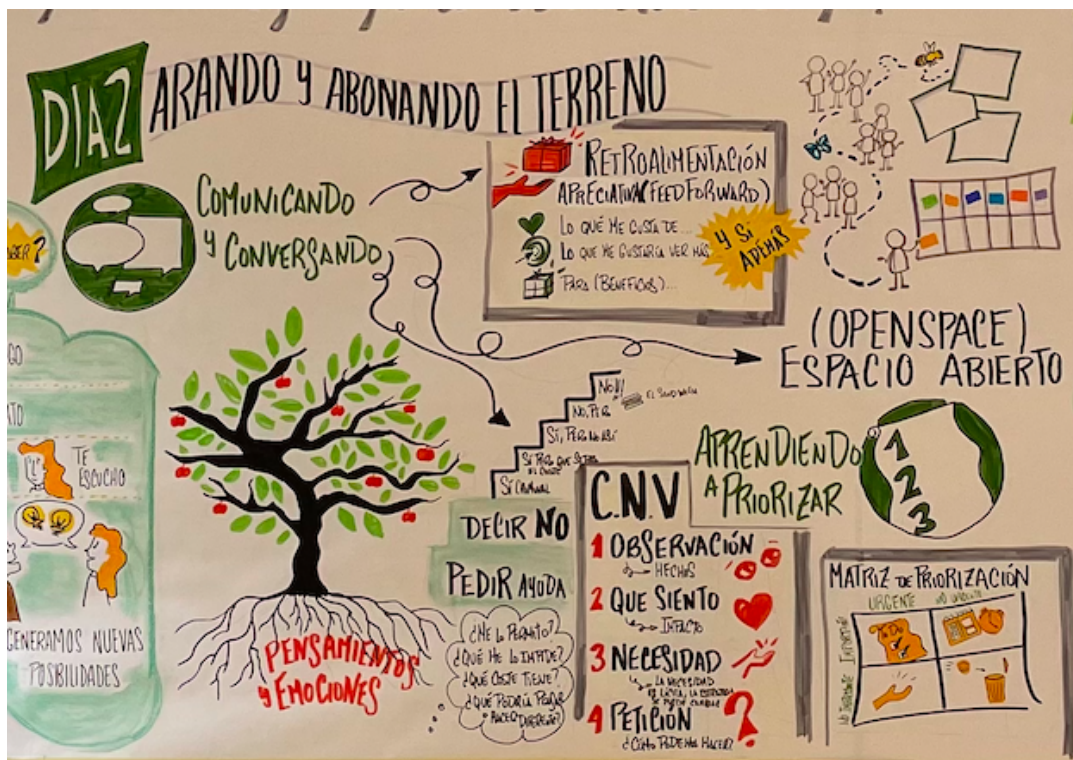 DIA2
ARANDO Y ABONANDO EL TERRENO
COMUNICANDO
Y CONVERSANDO
RETROALIMENTACIÓN
APRECIATIVA (FEED FORWARD)
LO QUÉ ME GUSTA DE...
LO QUE ME GUSTARIA VER MÁS
PARA (BENEFICIOS)...
Y SI
ADEMÁS
(OPENSPACE)
ESPACIO ABIERTO
TE
ESCUCHO
GENERAMOS NUEVAS
POSIBILIDADES
PENSAMIENTOS
Y EMOCIONES
NO!!
EL SANDWICH
NO, PERO
SÍ, PERO NO ASÍ
DECIR NO
PEDIR AYUDA
¿ME LO PERMITO?
¿QUÉ ME LO IMPIDE?
¿QUÉ COSTE TIENE?
¿QUÉ PODRÍA PENSAR
HACER DIFERENTE?
C.N.V
1 OBSERVACIÓN
HECHOS
2 QUE SIENTO
IMPACTO
3 NECESIDAD
LA NECESIDAD
ES LÍCITA, LA ESTRATEGIA
SE PUEDE CAMBIAR
4 PETICIÓN
¿CÓMO PODEMOS HACER?
APRENDIENDO
A PRIORIZAR
1
2
3
MATRIZ DE PRIORIZACIÓN
URGENTE NO URGENTE
IMPORTANTE
NO IMPORTANTE
To Do